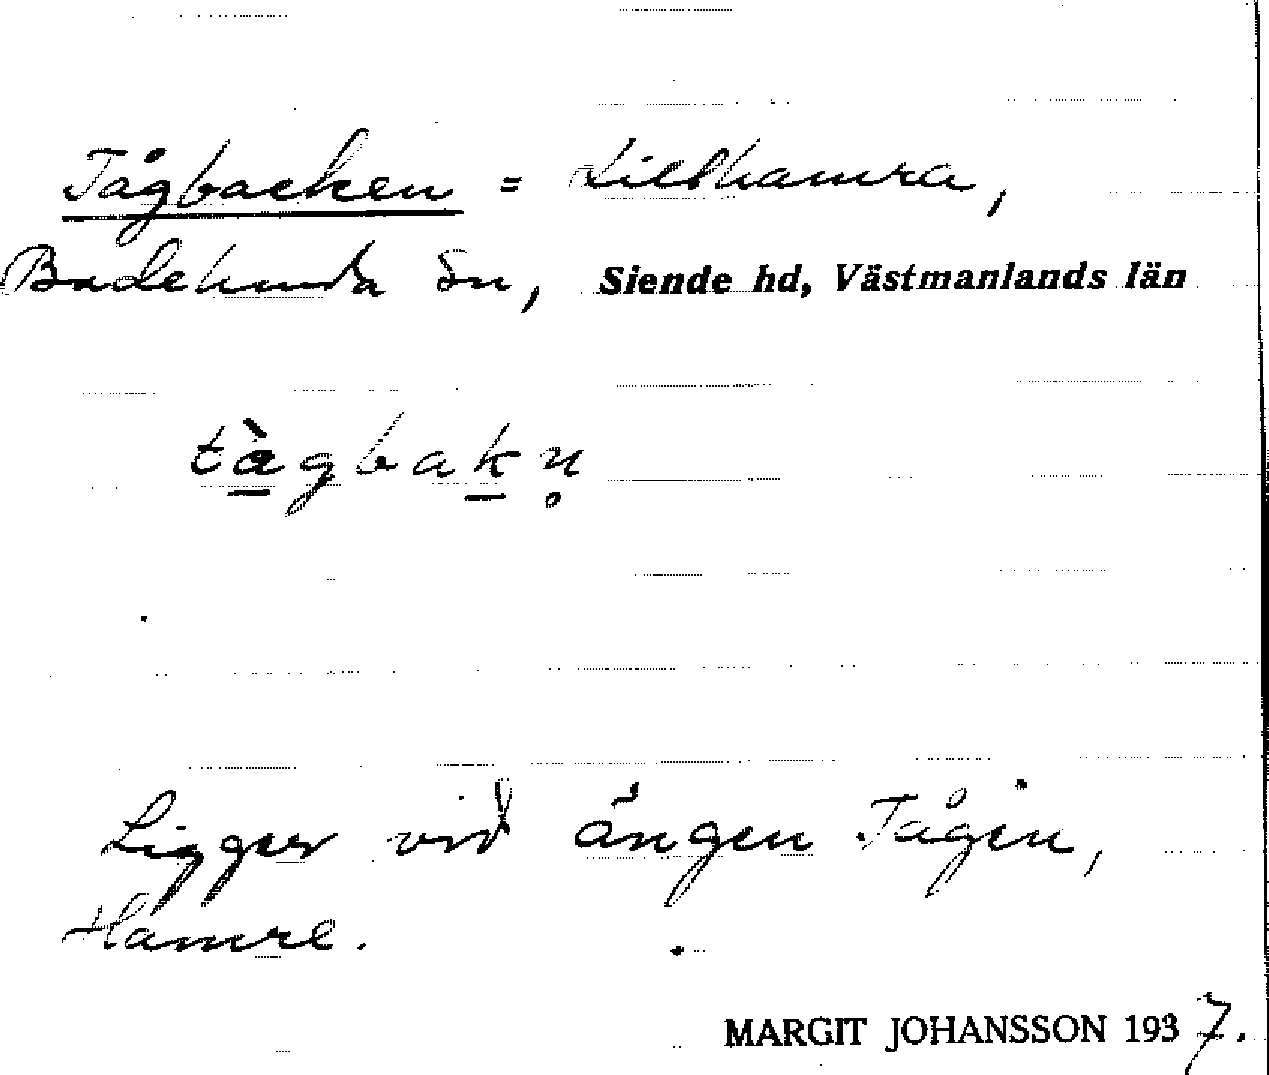 Tågbacken = Lillhamra,
Badelunda sn, Siende hd, Västmanlands län
tàgbakn̥
Ligger vid ängen Tågin,
Hamre.
MARGIT JOHANSSON 1937.